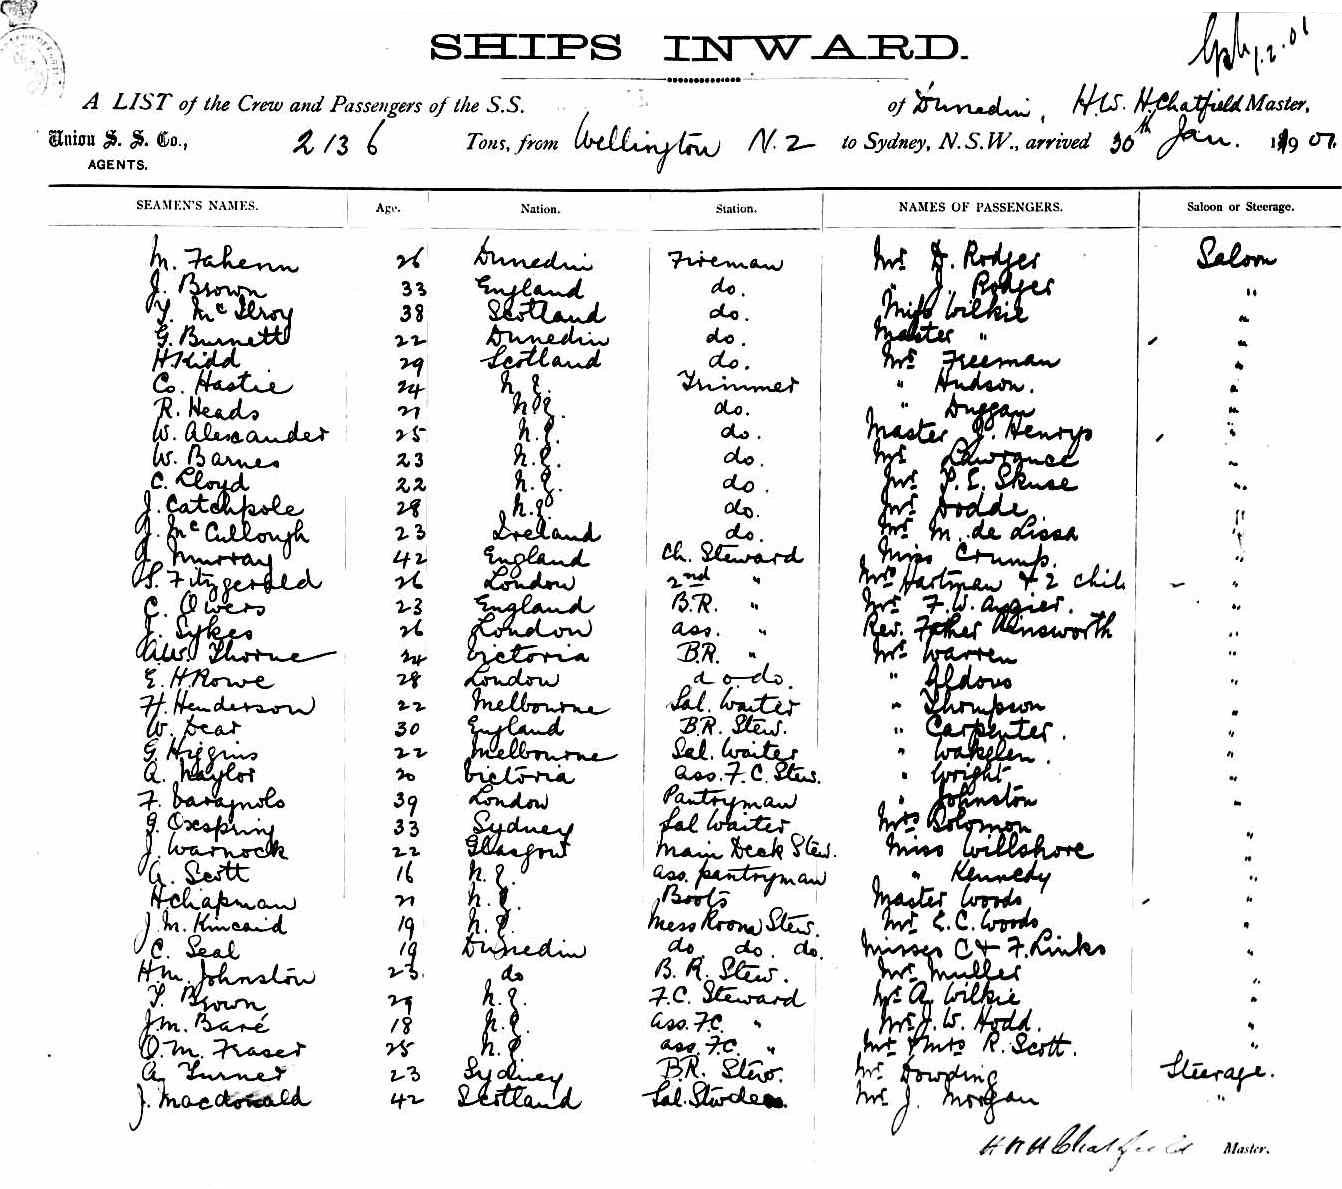 SHIPS INWARD.
A LIST of the Crew and Passengers of the S.S. of Dunedin, H.W.H. Chatfield Master,
Union S. S. Co., 2136 Tons, from Wellington N.Z to Sydney, N.S.W., arrived 30th Jan. 1901.
AGENTS.
SEAMEN'S NAMES. Age. Nation. Station. NAMES OF PASSENGERS. Saloon or Steerage.
M. Fahenn 26 Dunedin Fireman Mr. D. Rodger Saloon
J. Brown 33 England do. " J. Rodger "
T. McIlroy 38 Scotland do. Miss Wilkie "
G. Burnett 22 Dunedin do. Master " "
H Kidd 29 Scotland do. Mr. Freeman "
Co. Hastie 24 N.Z. Trimmer " Hudson. "
R. Heads 21 N.Z. do. " Duggan "
W. Alexander 25 N.Z. do. Master J. Henrys "
W. Barnes 23 N.Z. do. Mr. Lawrance "
C. Lloyd 22 N.Z. do. Mr. P. E. Skuse "
J. Catchpole 28 N.Z. do. Mr. Dodde "
J. McCullough 23 Ireland do. Mr. M. de Lissa "
J. Murray 42 England Ch. Steward Miss Crump. "
S. Fitzgerald 26 London 2nd " Mrs Hartman & 2 chil. "
C. Owers 23 England B.R. " Mr. F. W. Angier. "
J. Sykes 26 London Ass. " Rev. Father Ainsworth "
A.W. Thorne 24 Victoria B.R. " Mr. Warren "
E. H. Rowe 28 London do do. " Aldous "
H. Henderson 22 Melbourne Sal. Waiter " Thompson "
W. Dear 30 England B.R. Stew. " Carpenter. "
G. Higgins 22 Melbourne Sal. Waiter " Wakelen. "
A. Naylor 20 Victoria Ass. F. C. Stew. " Wright "
F. Varagnols 39 London Pantryman " Johnston "
G. Oxspring 33 Sydney Sal Waiter Mrs Solomon "
J. Warnock 22 Glasgow Main Deck Stew. Miss Willshore "
A. Scott 16 N.Z. Ass. pantryman " Kennedy "
H Chapman 21 N.Z. Boots Master Woods "
J. M. Kincaid 19 N.Z. Mess Room Stew. Mr. E. C. Woods "
C. Seal 19 Dunedin do. do. do. Misses C & F. Links "
H.M. Johnston 23. do B. R. Stew. Mr. Muller "
T. Brown 29 N.Z. F.C. Steward Mr. A. Wilkie "
J.M. Baré 18 N.Z. Ass. F.C. " Mr. J. W. Hodd. "
O. M. Fraser 25 N.Z. Ass. F.C. " Mr. & Mrs R. Scott. "
A. Turner 23 Sydney B.R. Stew. Mr. Dowding Steerage.
J. Macdonald 42 Scotland Sal. Stwdess. Mr. J. Morgan "
H W H Chatfield Master.